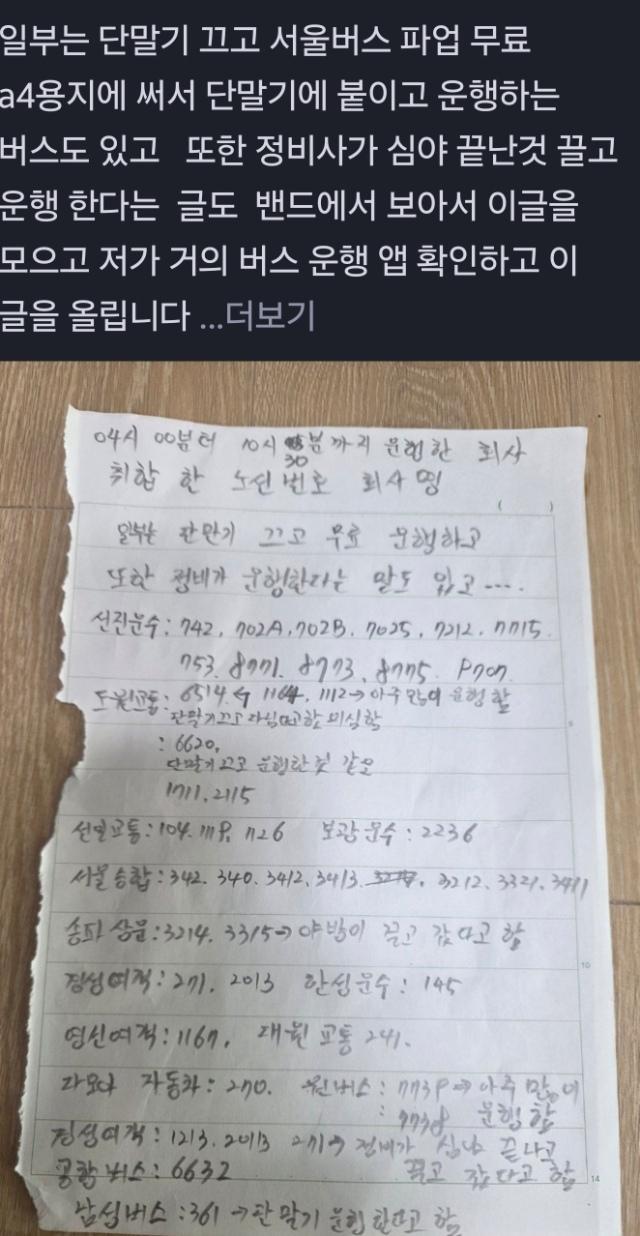 일부는 단말기 끄고 서울버스 파업 무료
a4용지에 써서 단말기에 붙이고 운행하는
버스도 있고 또한 정비사가 심야 끝난것 끌고
운행 한다는 글도 밴드에서 보아서 이글을
모으고 저가 거의 버스 운행 앱 확인하고 이
글을 올립니다 ...더보기
04시 00분터 10시 30 분까지 운행한 회사
취합 한 노선번호 회사 명
( )
일부는 단말기 끄고 무료 운행하고
또한 정비가 운행한다는 말도 있고....
선진운수: 742, 702A, 702B, 7025, 7212, 7715
753. 8771. 8773. 8775. P707
도원교통: 6514, 1164, 1112→아주 많이 운행 함
단말기끄고
: 6620,
단말기 끄고 운행한 것 같음
1711, 2115
선일교통: 104. 1119, 1126 보광운수: 2236
서울승합: 342. 340. 3412. 3413. 3212. 3321. 3411
송파상운: 3214. 3315→야밤이 끌고 갔다고 함
경성여객: 271. 2013 한성운수: 145
영신여객: 1167, 대원교통 241.
다모아 자동차: 270. 원버스: 773P→아주 많이
: 9738 운행 함
경성여객: 1213. 2013 271→정비가 심야 끝나고
공항버스: 6632 끌고 갔다고 함
남성버스: 361→단말기 운행한다고 함